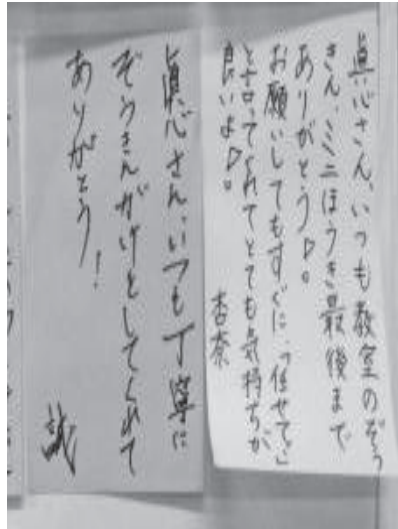 真心さん、いつも教室のぞう
きん、ミニほうき最後まで
ありがとう♡。
お願いしてもすぐに、「任せて。」
と言ってくれてとても気持ちが
良いよ♡。
杏奈
真心さん、いつも丁寧に
ぞうきんがけをしてくれて
ありがとう!
誠